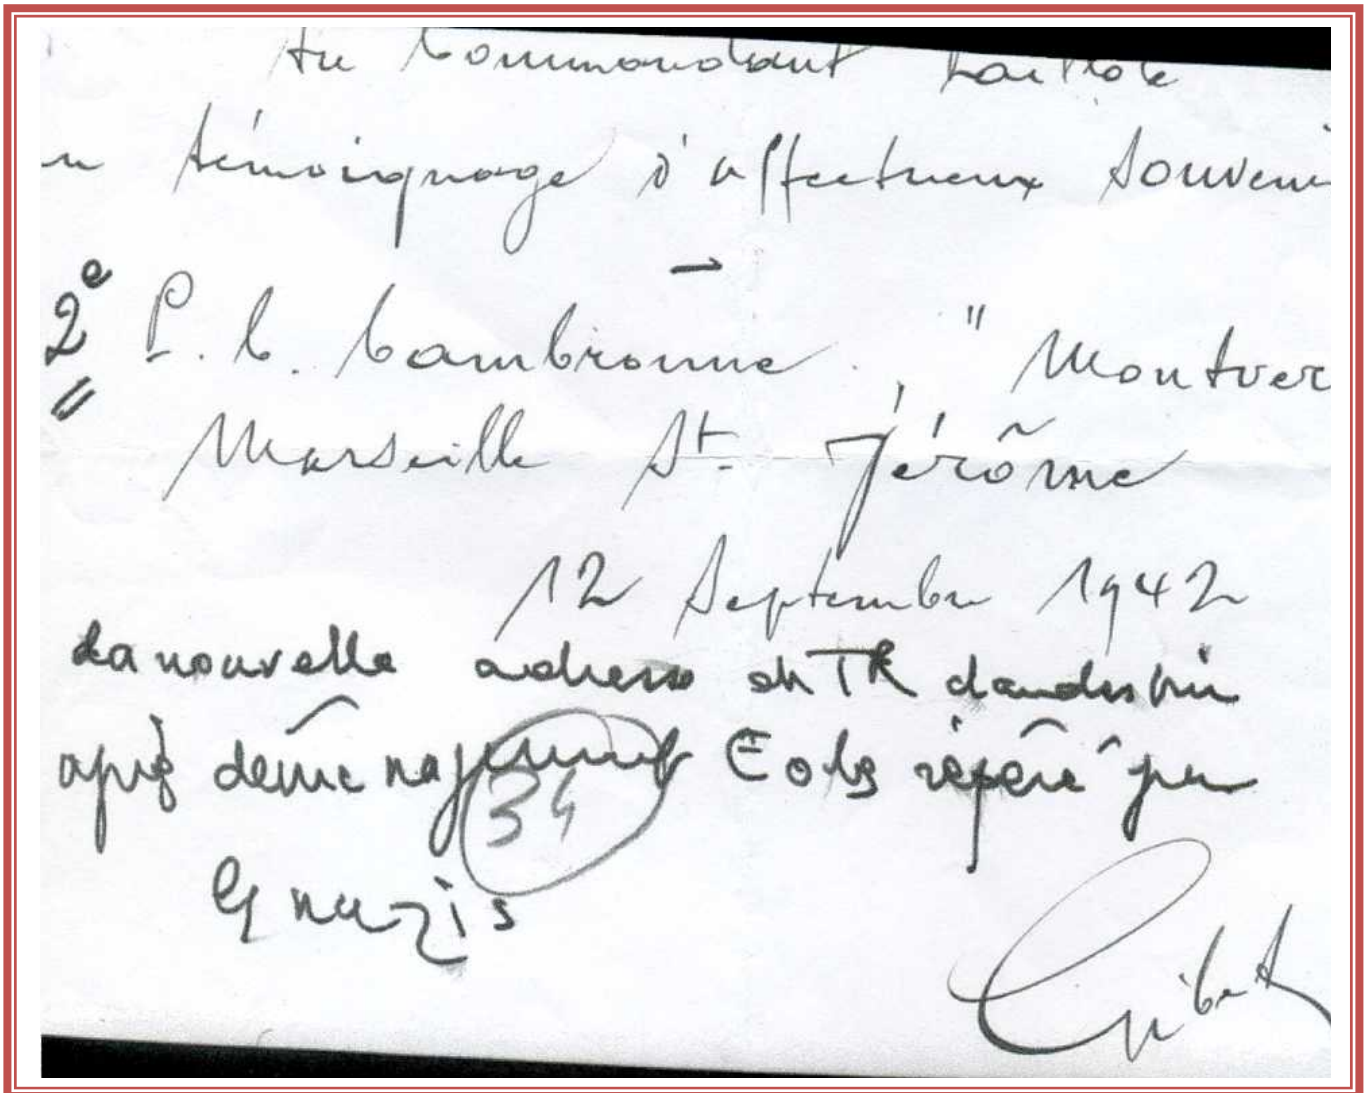 Au Commandant Paillole
en témoignage d'affectueux souveni
2e P.C. Cambronne, "Montver
Marseille St. Jérôme
12 Septembre 1942
La nouvelle adresse du TR clandestin
après déménagement Eole repéré par
34
les nazis
Guibert